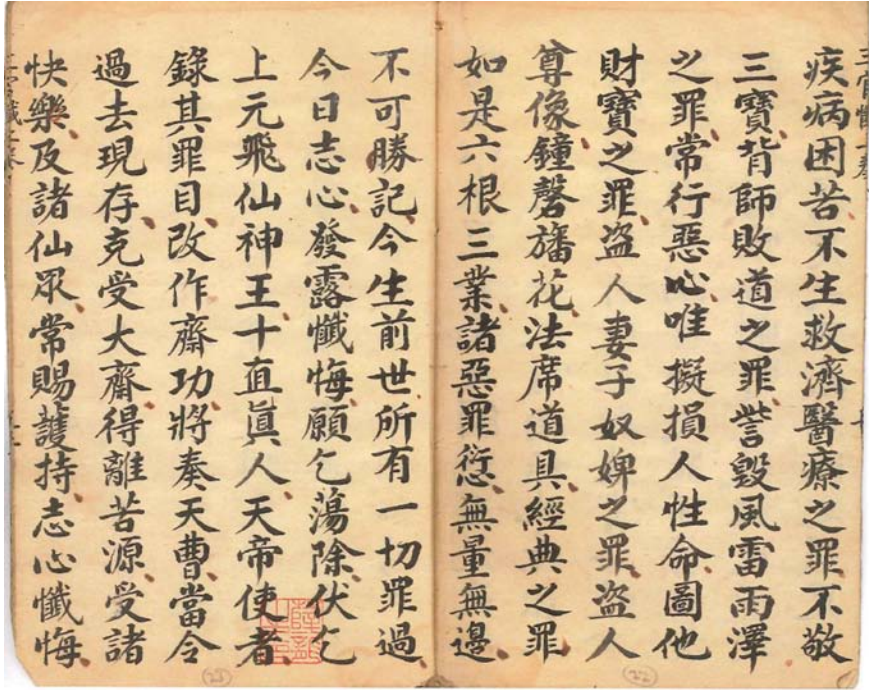 疾病困苦不生救濟醫療之罪不敬
三寶背師敗道之罪訾毀風雷雨澤
之罪常行惡心唯擬損人性命圖他
財寶之罪盜人妻子奴婢之罪盜人
尊像鐘磬旛花法席道具經典之罪
如是六根三業諸惡罪愆無量無邊
不可勝記今生前世所有一切罪過
今日志心發露懺悔願乞蕩除伏乞
上元飛仙神王十直眞人天帝使者
錄其罪目改作齋功將奏天曹當令
過去現存克受大齋得離苦源受諸
快樂及諸仙眾常賜護持志心懺悔
22
23